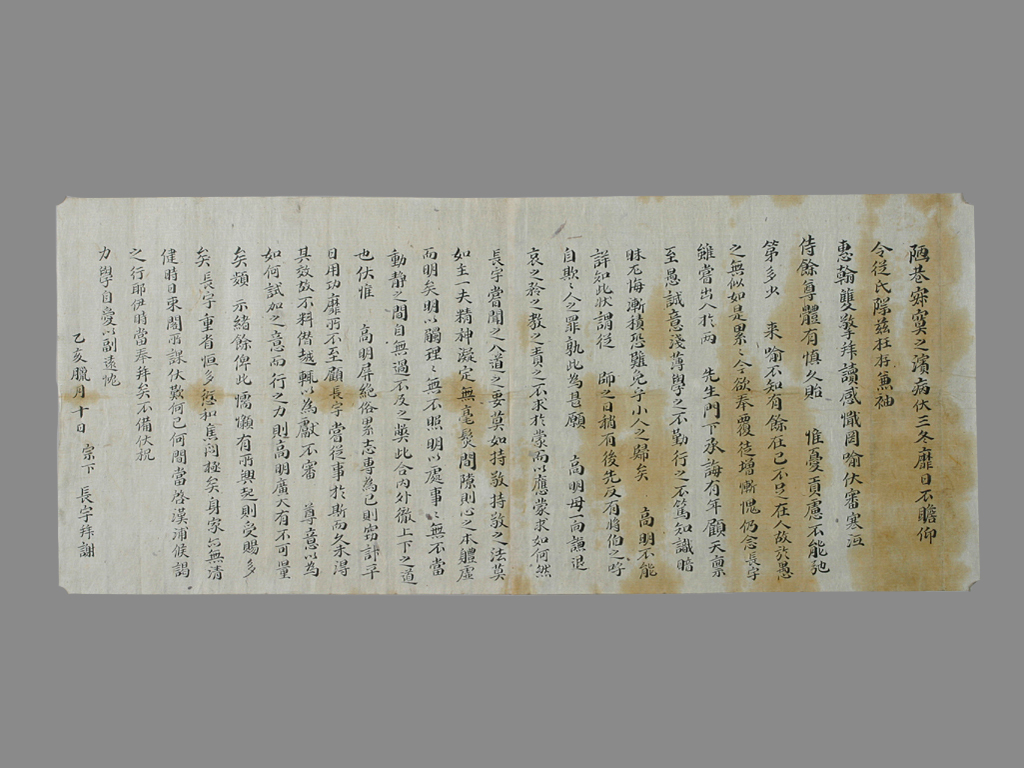 陋巷寂寞之濱病伏三冬靡日不瞻仰
令從氏際茲枉存兼袖
惠翰雙擎拜讀感慰罔喻伏審寒沍
侍餘尊體有愼久貽 惟憂貢慮不能弛
第多少 來喻不知有餘在己不足在人故於愚
之無似如是累〻今欲奉覆徒增慚愧仍念長宇
雖嘗出入於兩 先生門下承誨有年顧天稟
至愚誠意淺薄學之不勤行之不篤知識暗
昧尤悔漸積恐難免乎小人之歸矣 高明不能
詳知此狀謂從 師之日稍有後先反有將伯之呼
自欺〻人之罪孰此爲甚願 高明毋一向謙退
哀之矜之敎之責之不求於蒙而以應蒙求如何然
長宇嘗聞之入道之要莫如持敬持敬之法莫
如主一夫精神凝定無毫髮間隙則心之本體虛
而明矣明以窮理〻無不照明以處事〻無不當
動靜之間自無過不及之弊此合內外徹上下之道
也伏惟 高明屛絶俗累志專爲己則竊計平
日用功靡所不至顧長宇嘗從事於斯而久未得
其效故不料僭越輒以爲獻不審 尊意以爲
如何試加之意而行之力則高明廣大有不可量
矣頻 示緖餘俾此懦懶有所興起則受賜多
矣長宇重省恒多愆和焦悶極矣身家亦無淸
健時日束閣所課伏歎何已何間當啓漢浦候謁
之行耶伊時當奉拜矣不備伏祝
力學自愛以副遠忱
乙亥臘月十日 宗下 長宇拜謝